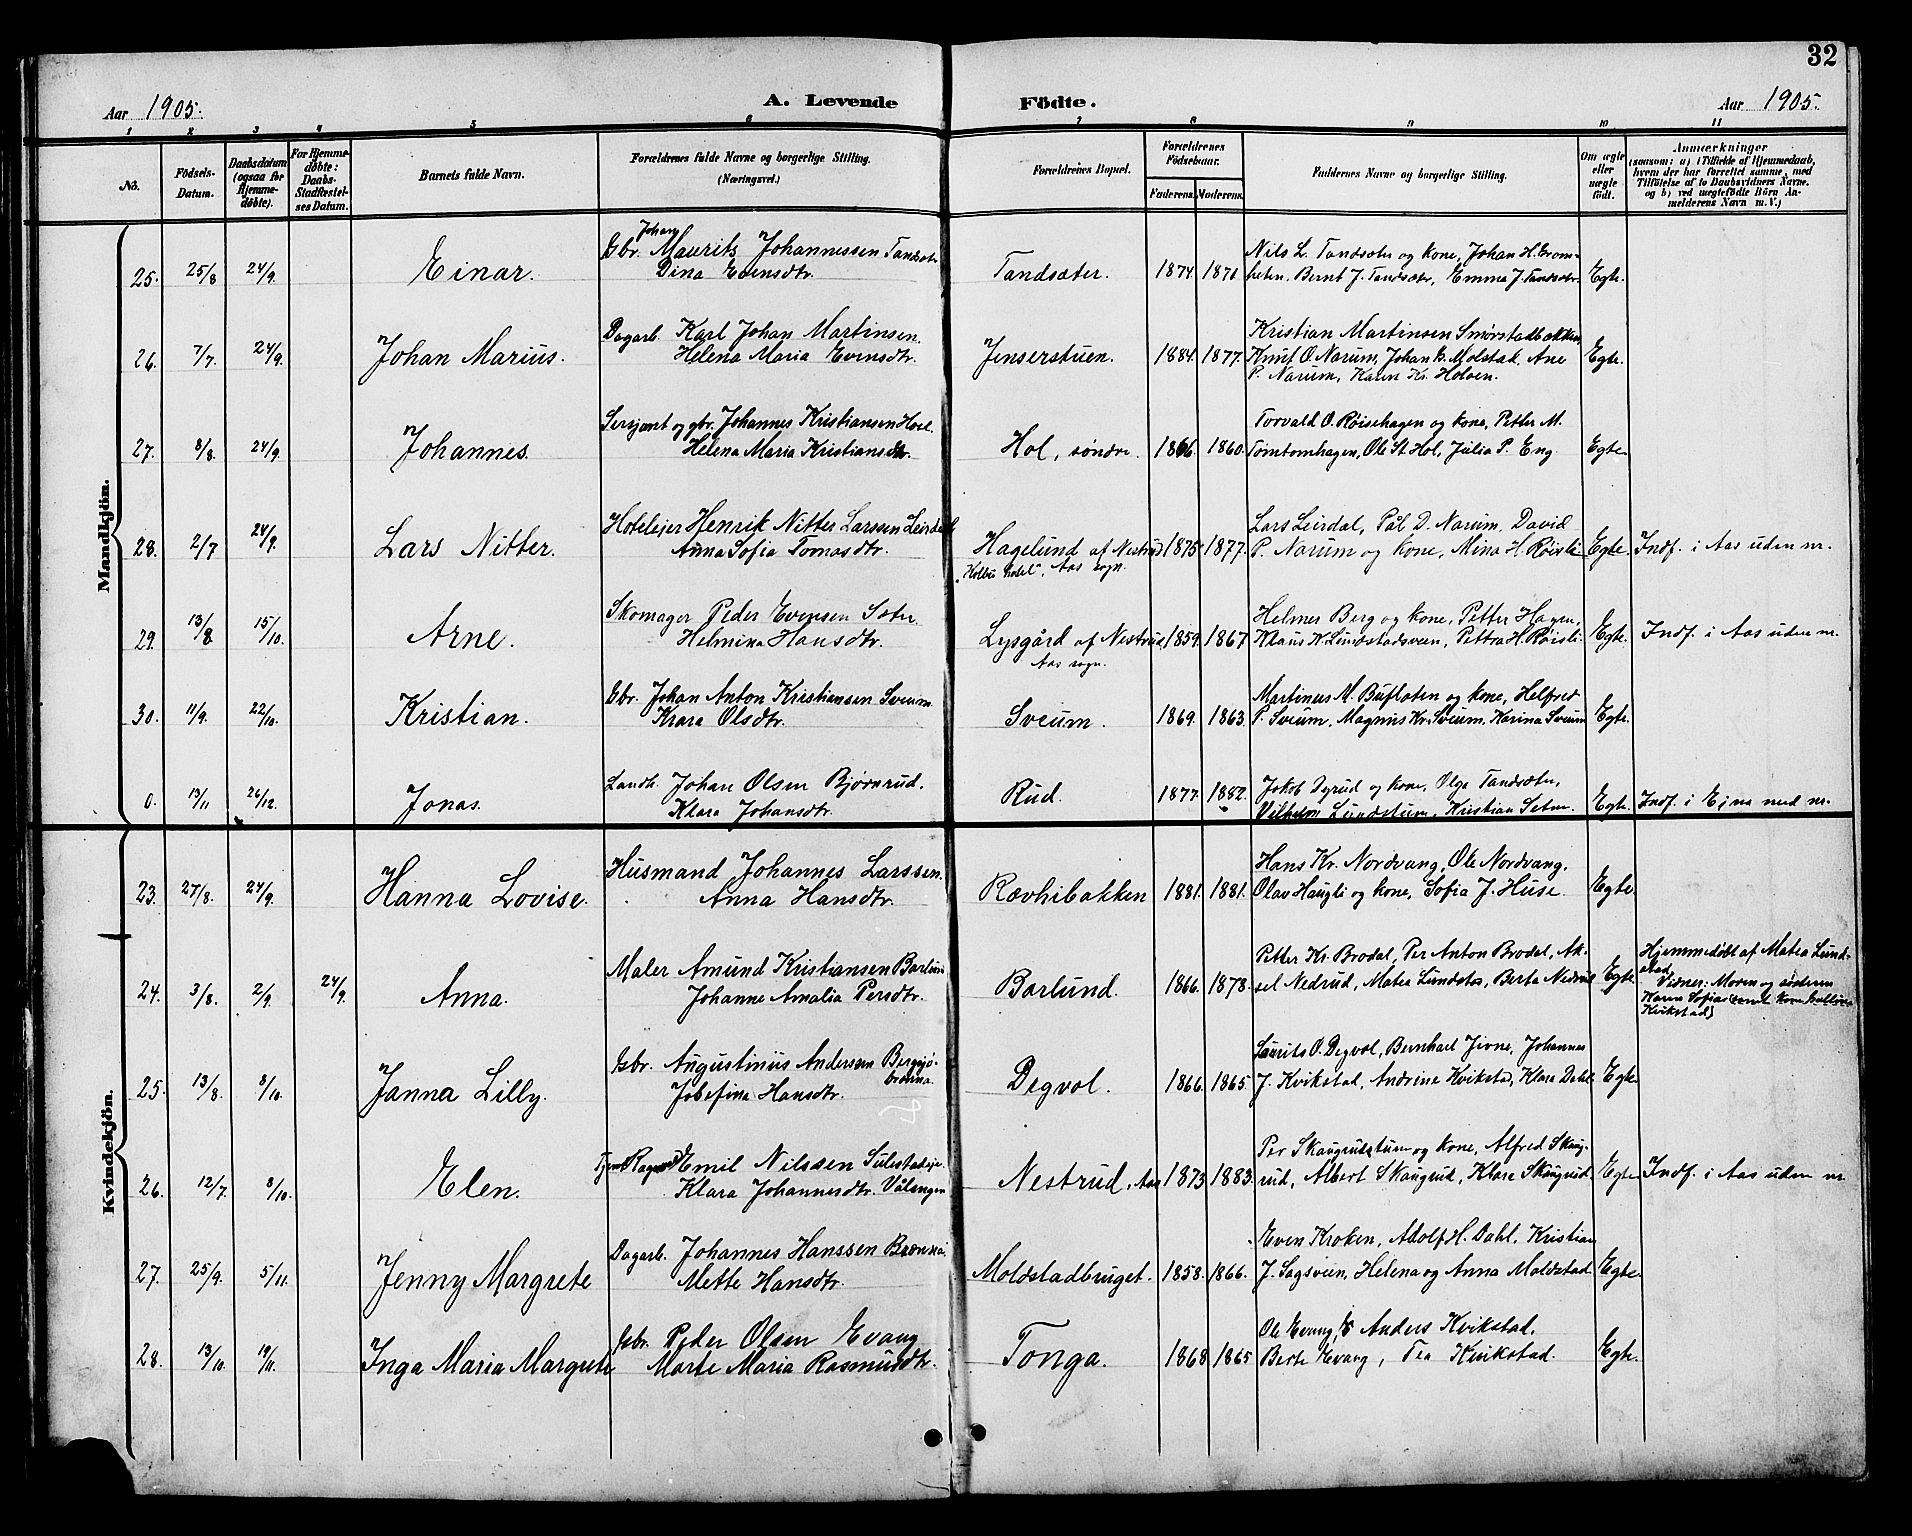 32
Aar 1905.
A. Levende Födte.
Aar 1905.
1 2 3 4 5 6 7 8 9 10 11
No.
Födsels-Datum.
Daabsdatum (ogsaa for Hjemme-döbte).
For Hjemme-döbte: Daabs-Stadfæstel-ses Datum.
Barnets fulde Navn.
Forældrenes fulde Navne og borgerlige Stilling. (Næringsvei.)
Forældrenes Bopæl.
Forældrenes Födselsaar.
Faderens. Moderens.
Faddernes Navne og borgerlige Stilling.
Om ægte eller uægte födt.
Anmærkninger
(saasom: a) i Tilfælde af Hjemmedaab,
hvem der har forrettet samme, med
Tilföielse af to Daabsvidners Navne.
og b) ved uegtefödte Börn An-
melderens Navn m. V.)
Mandkjön.
25. 25/8 24/9. Einar.
Gbr. Johan Maurits Johannessen Tandsæter
Dina Evensdtr.
Tandsæter. 1874 1871
Nils L. Tandsæter og kone, Johan H. Grom-
heten, Bernt J. Tandsæter, Emma J. Tandsæter
Egte.
26. 7/7. 24/9. Johan Marius.
Dagarb. Karl Johan Martinsen
Helena Maria Evensdtr.
Jenserstuen. 1884. 1877.
Kristian Martinsen Smørstadbakken,
Knut O. Narum, Johan G. Molstak, Ane
P. Narum, Karen Kr. Holven.
Egte.
27. 8/8. 24/9. Johannes.
Sersjant og gbr. Johannes Kristiansen Hoel.
Helena Maria Kristiansdtr.
Hol, søndre. 1866. 1860.
Torvald O. Røisehagen og kone, Petter M.
Tømtomhagen, Ole St. Hol, Julia P. Eng
Egte
28. 2/7 24/9. Lars Nitter.
Hoteleier Henrik Nitter Larssen Leirdal
Anna Sofia Tomasdtr.
Hagelund af Nestrud
"Kolbu hotel", Aas sogn.
1875 1877.
Lars Leirdal, Pål D. Narum, David
P. Narum og kone, Mina H. Røisli
Egte. Indf. i Aas uden nr.
29. 13/8 15/10. Arne.
Skomager Peder Evensen Sæter
Helmina Hansdtr.
Lysgård af Nestrud
Aas sogn.
1859. 1867
Helmer Berg og kone, Petter Hagen,
Klaus N. Lundstadsveen, Pettra H. Røisli
Egte. Indf. i Aas uden nr.
30. 11/9. 22/10. Kristian.
Gbr. Johan Anton Kristiansen Sveum
Klara Olsdtr.
Sveum. 1869. 1863.
Martinus M. Buflaten og kone, Helfred
P. Sveum, Magnus Kr. Sveum, Karina Sveum
Egte.
0. 13/11 26/12. Jonas.
Landh. Johan Olsen Bjørnrud.
Klara Johansdtr.
Rud. 1877. 1882.
Jakob Dyrud og kone, Olga Tandsæter,
Vilhelm Lundstuen, Kristian Sæter.
Egte. Indf. i Eina med nr.
Kvindekjön.
23. 27/8. 24/9. Hanna Lovise.
Husmand Johannes Larssen.
Anna Hansdtr.
Rævhibakken 1881. 1881.
Hans Kr. Nordvang, Ole Nordvang,
Olav Haugli og kone, Sofia J. Huse
Egte
24. 3/8. 2/9. 24/9. Anna.
Maler Amund Kristiansen Barlund
Johanne Amalia Persdtr.
Barlund. 1866. 1878.
Petter Kr. Brodal, Per Anton Brodal, Ak-
sel Nedrud, Matea Lundstad, Berta Nedrud
Egte Hjemmedøbt af Matea Lund-
stad,
Vidner: Moren og søsteren
Karen Sofia
Kvikstad
25. 13/8. 8/10. Janna Lilly.
Gbr. Augustinus Anderssen Bergsjø-
brænna.
Josefina Hansdtr.
Degvol. 1866. 1865.
Laurits O. Degvol, Bernhart Jivne, Johannes
J. Kvikstad, Andrine Kvikstad, Klara Dahl
Egte
26. 12/7. 8/10. Elen.
Emil Nilssen Sulestadeie
Klara Johannesdtr. Vålengen
Nestrud, Aas 1873 1883.
Per Skaugrudstuen og kone, Alfred Skaug-
rud, Albert Skaugrud, Klara Skaugrud.
Egte Indf. i Aas uden nr
27. 25/9. 5/11. Jenny Margrete
Dagarb. Johannes Hanssen Brænna
Mette Hansdtr.
Moldstadbruget. 1858. 1866.
Even Kroken, Adolf H. Dahl, Kristian
J. Sagsveen, Helena og Anna Moldstad
Egte.
28. 13/10. 19/11. Inga Maria Margrete
Gbr. Peder Olsen Evang
Marte Maria Rasmusdtr.
Tonga. 1868 1865
Ole Evang, Anders Kvikstad.
Berte Evang, Tea Kvikstad.
Egte.